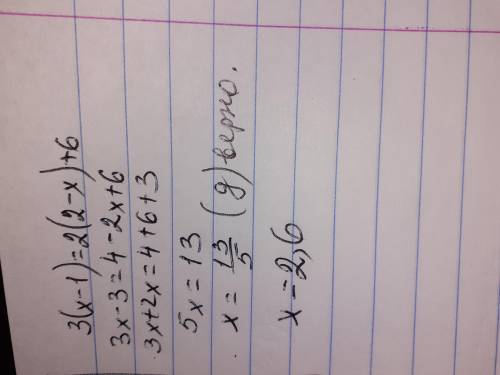 3(x-1)=2(2-x)+6
3x-3=4-2x+6
3x+2x=4+6+3
5x=13
x=13/5 (g) верно.
x=2,6